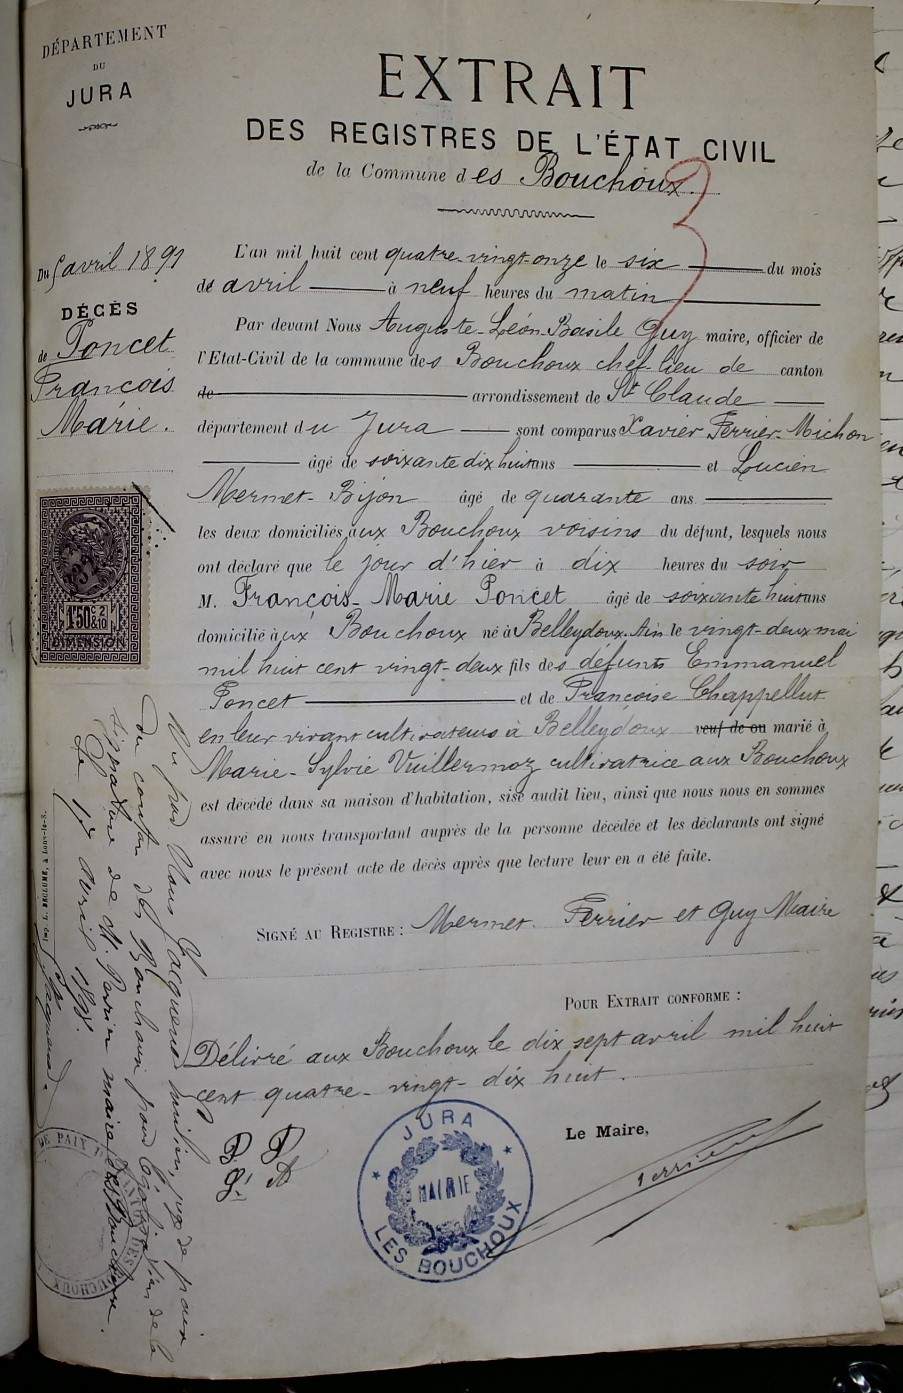 DÉPARTEMENT
DU
JURA
EXTRAIT
DES REGISTRES DE L'ÉTAT CIVIL
de la Commune des Bouchoux.
3
Du 5 avril 1891
DÉCÈS
de Poncet
François
Marie.
L'an mil huit cent quatre-vingt-onze le six du mois
de avril à neuf heures du matin
Par devant Nous Auguste-Léon-Basile Guy maire, officier de
l'Etat-Civil de la commune des Bouchoux chef-lieu de canton
de arrondissement de St Claude
département du Jura sont comparus Xavier Perrier-Michon
âgé de soixante dix huit ans et Lucien
Mermet-Bijon âgé de quarante ans
les deux domiciliés aux Bouchoux voisins du défunt, lesquels nous
ont déclaré que le jour d'hier à dix heures du soir
M. François-Marie Poncet âgé de soixante huit ans
domicilié aux Bouchoux né à Belleydoux. Ain le vingt-deux mai
mil huit cent vingt-deux fils des défunts Emmanuel
Poncet et de Françoise Chappellut
en leur vivant cultivateurs à Belleydoux veuf de ou marié à
Marie-Sylvie Vuillermoz cultivatrice aux Bouchoux
est décédé dans sa maison d'habitation, sise audit lieu, ainsi que nous nous en sommes
assuré en nous transportant auprès de la personne décédée et les déclarants ont signé
avec nous le présent acte de décès après que lecture leur en a été faite.
SIGNÉ AU REGISTRE : Mermet. Perrier et Guy Maire
POUR EXTRAIT CONFORME :
Délivré aux Bouchoux le dix sept avril mil huit
cent quatre-vingt-dix huit.
Le Maire,
JURA
MAIRIE
LES BOUCHOUX
1'50 c 2
&10
DIMENSION
Vu par Nous Jacquend juge de paix
du canton des Bouchoux pour légalisation de la
signature de M. Perrier maire des Bouchoux.
Le 17 avril 1898.
DE PAIX
BOUCHOUX